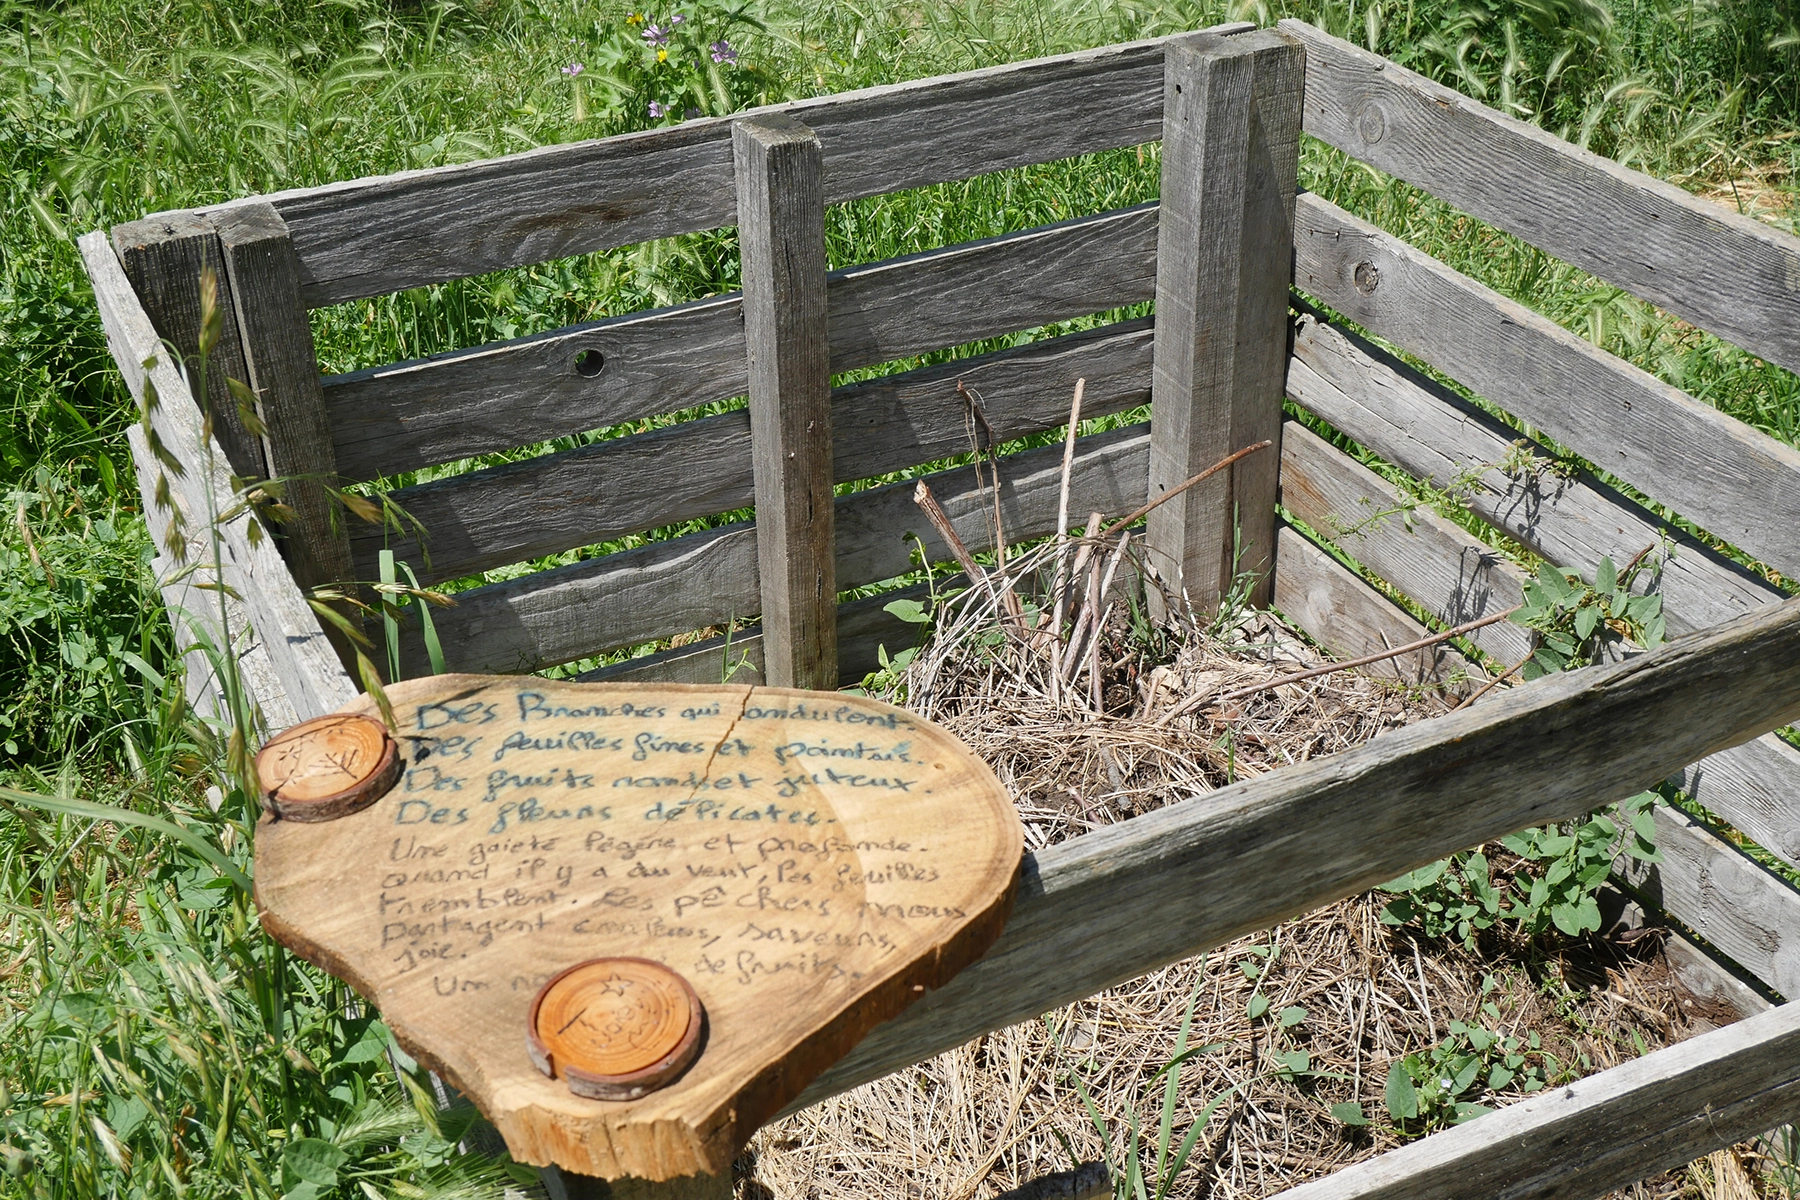 Des Branches qui ondulent.
Des feuilles fines et pointues.
Des fruits ronds et juteux.
Des fleurs délicates.
Une gaieté légère et profonde.
quand il y a du vent, les feuilles
tremblent. Les pêchers nous
partagent couleurs, saveurs,
joie.
Un de fruits.